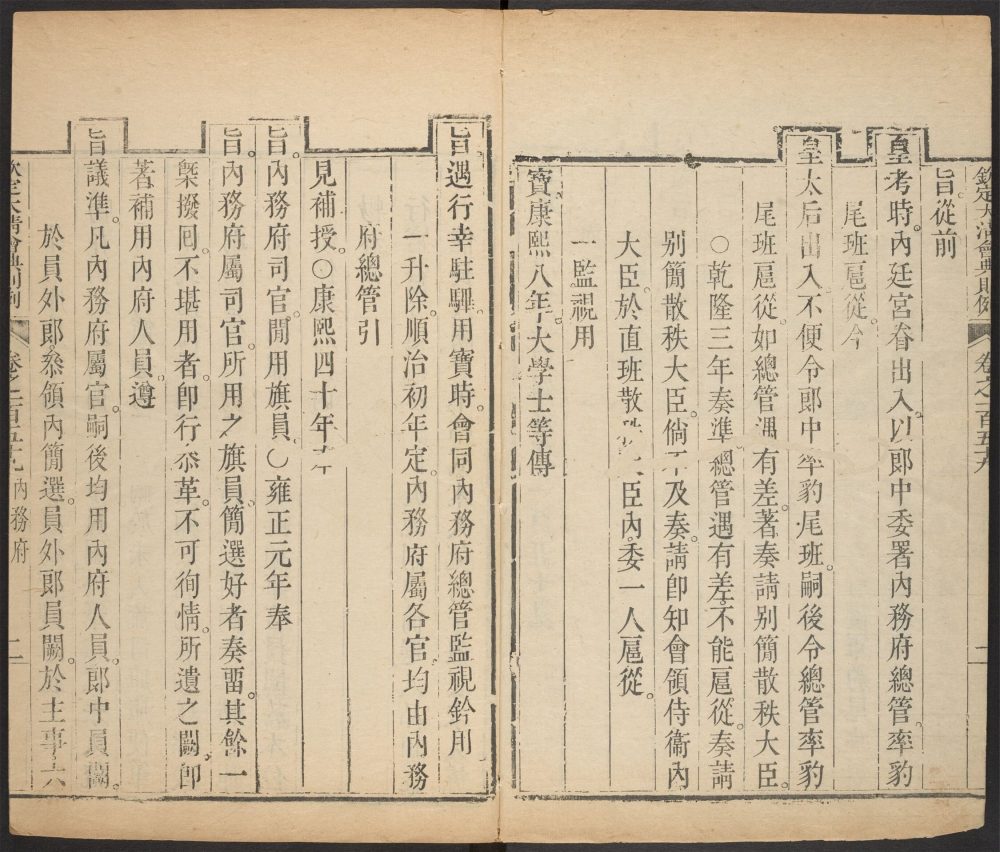 欽定大清會典則例 卷之一百五十九 二
旨從前
皇考時。內廷宮眷出入。以郎中委署內務府總管。率豹
尾班扈從。今
皇太后出入。不便令郎中率豹尾班。嗣後令總管率豹
尾班扈從。如總管遇有差。著奏請别簡散秩大臣。
○乾隆三年奏準。總管遇有差。不能扈從。奏請
别簡散秩大臣。倘不及奏請。卽知會領侍衞內
大臣。於直班散秩大臣內。委一人扈從。
一監視用
寶。康熙八年。大學士等傳
旨。遇行幸駐驆。用寶時。會同內務府總管監視鈐用
一升除。順治初年定。內務府屬各官。均由內務
府總管引
見補授。○康熙四十年奉
旨。內務府司官。閒用旗員。○雍正元年奉
旨。內務府屬司官。所用之旗員。簡選好者奏畱。其餘一
槩撥回。不堪用者。卽行叅革。不可徇情。所遺之闕。卽
著補用內府人員。遵
旨議準。凡內務府屬官。嗣後均用內府人員。郎中員闕。
於員外郎。叅領內簡選。員外郎員闕。於主事。六
欽定大清會典則例 卷之一百五十九 內務府 二